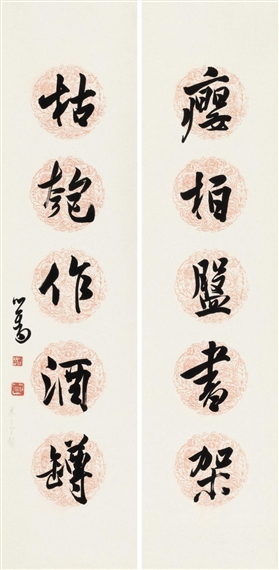 瘿柏盤書架
枯匏作酒罇
心畬